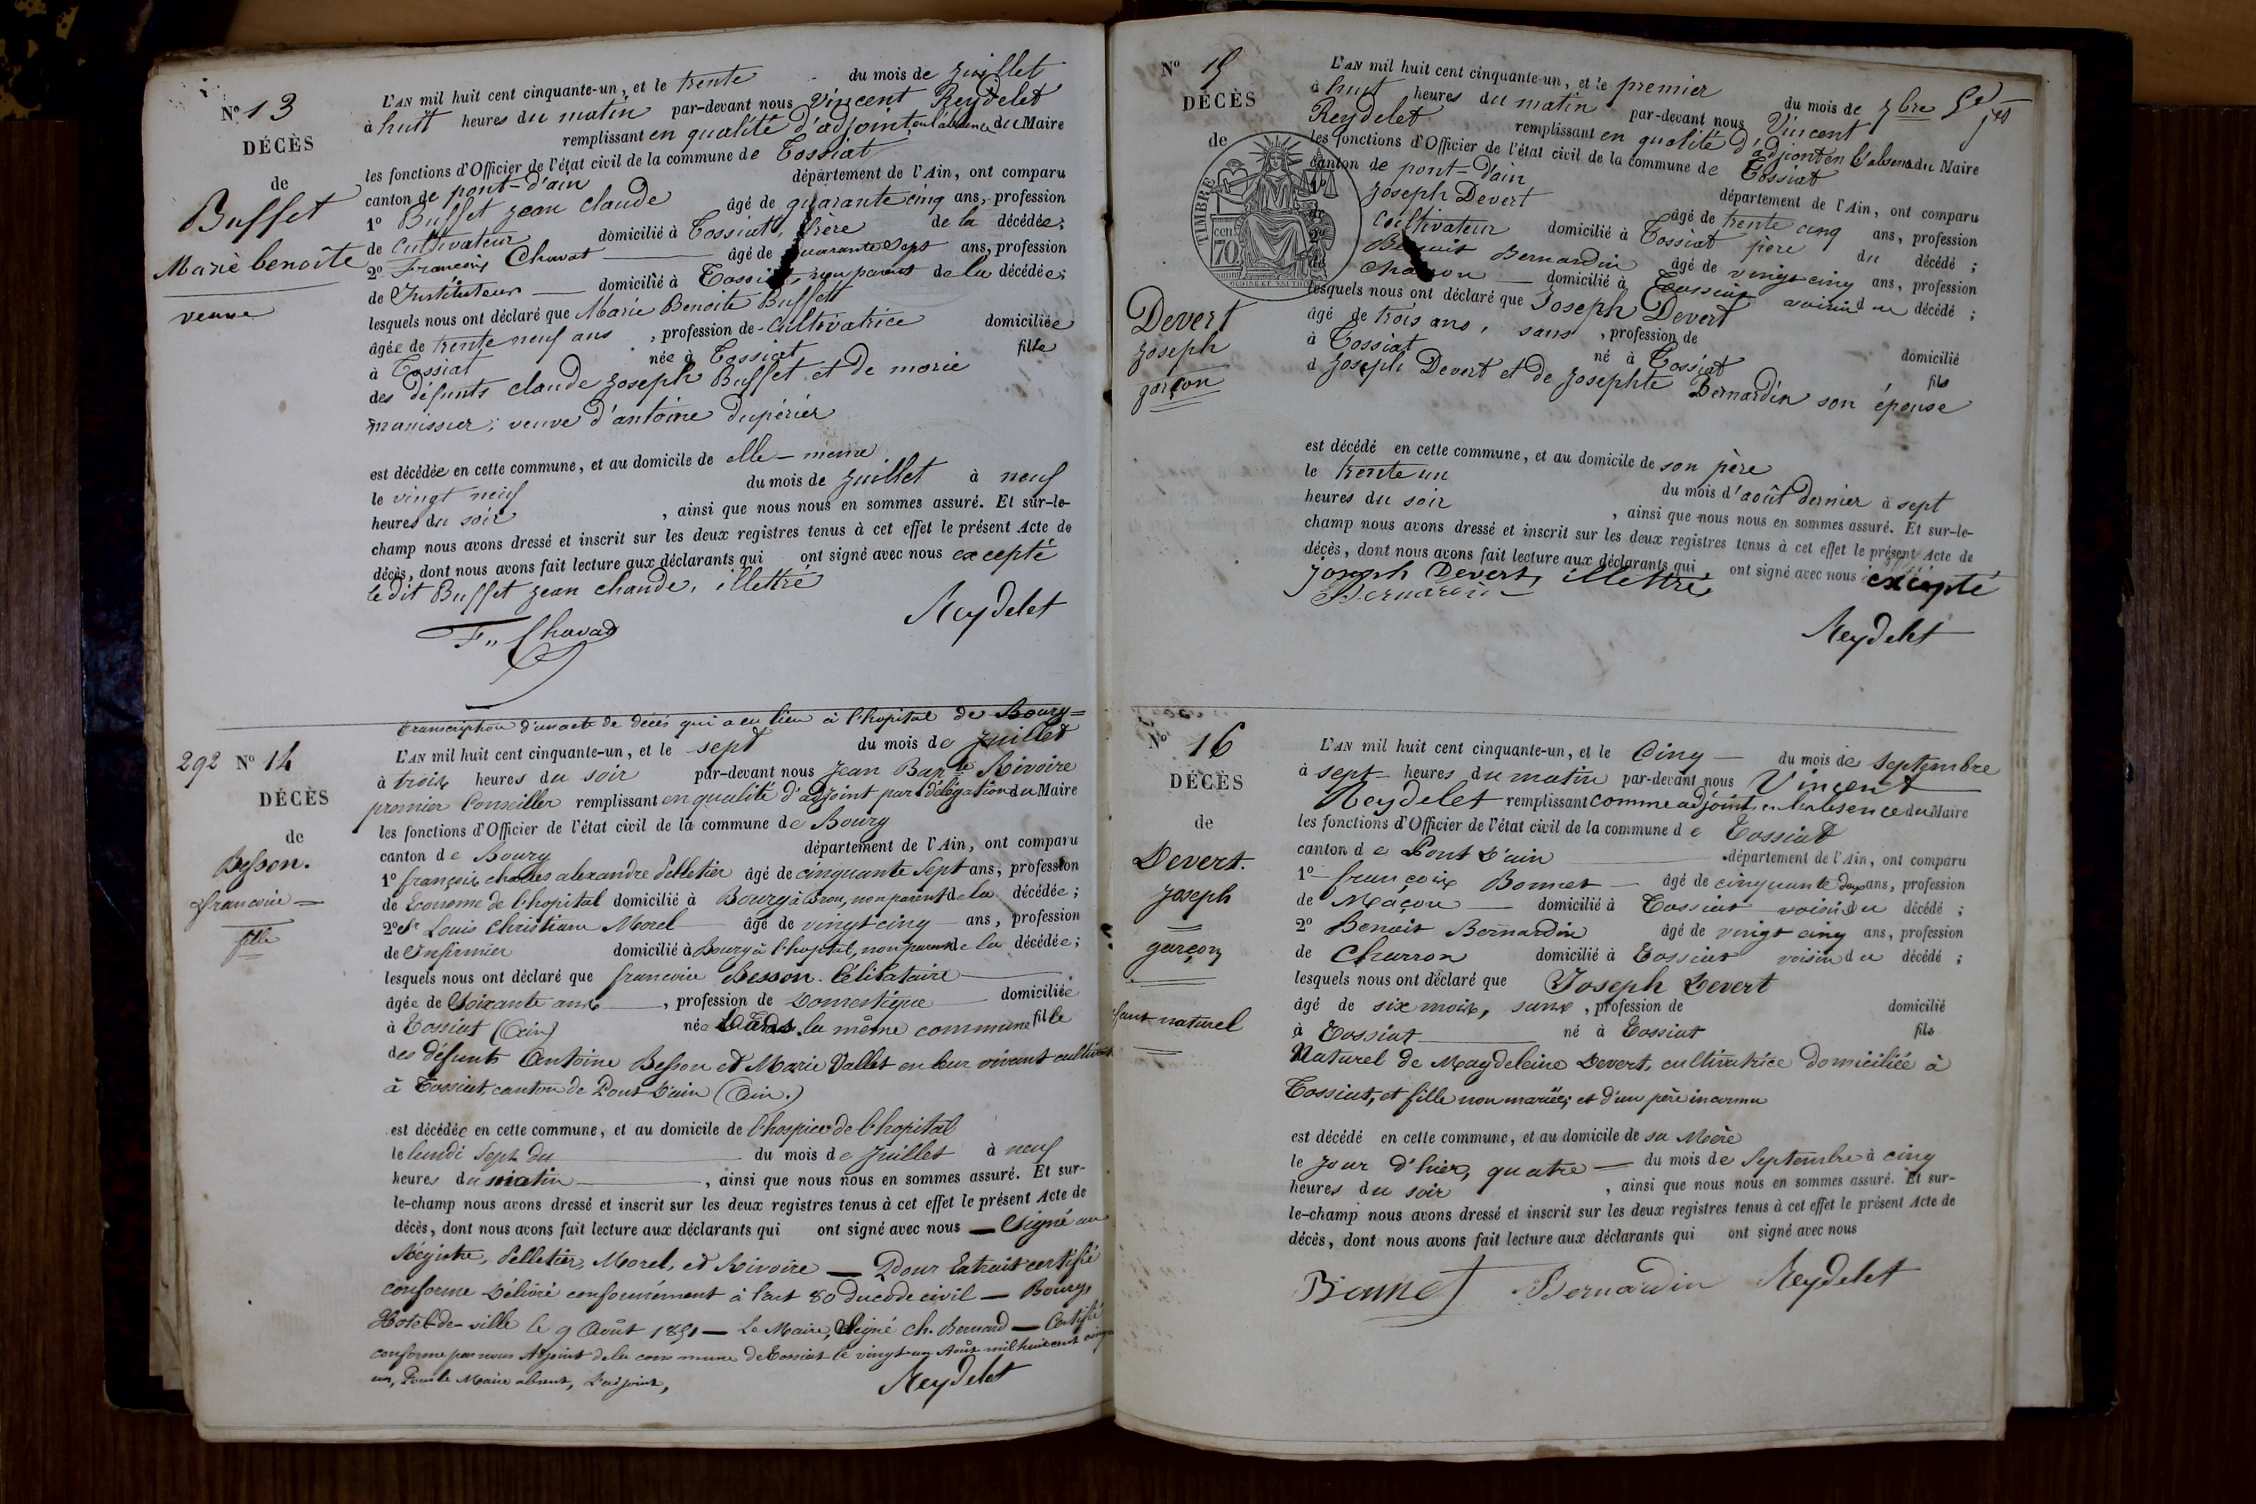 N° 13
DÉCÈS
de
Buffet
Marie benoite
veuve
L'AN mil huit cent cinquante-un, et le trente du mois de juillet
à huit heures du matin par-devant nous Vincent Reydelet
remplissant en qualité d'adjoint en l'absence du Maire
les fonctions d'Officier de l'état civil de la commune de Tossiat
canton de pont-d'ain département de l'Ain, ont comparu
1° Buffet jean claude âgé de quarante cinq ans, profession
de Cultivateur domicilié à Tossiat, frère de la décédée;
2° François Chavat âgé de quarante sept ans, profession
de Instituteur domicilié à Tossiat, non parent de la décédée;
lesquels nous ont déclaré que Marie Benoite Buffet
âgée de trente neuf ans, profession de Cultivatrice domiciliée
à Tossiat née à Tossiat fille
des défunts claude joseph Buffet et de marie
manissier; veuve d'antoine dupérier
est décédée en cette commune, et au domicile de elle-même
le vingt neuf du mois de juillet à neuf
heures du soir, ainsi que nous nous en sommes assuré. Et sur-le-
champ nous avons dressé et inscrit sur les deux registres tenus à cet effet le présent Acte de
décès, dont nous avons fait lecture aux déclarants qui ont signé avec nous excepté
le dit Buffet jean claude, illettré
F. Chavat Reydelet
transcription d'un acte de décès qui a eu lieu à l'hopital de Bourg=
292 N° 14
DÉCÈS
de
Besson.
francoise =
fille
L'AN mil huit cent cinquante-un, et le sept du mois de juillet
à trois heures du soir par-devant nous Jean Bapte Rivoire
premier Conseiller remplissant en qualité d'adjoint par délégation du Maire
les fonctions d'Officier de l'état civil de la commune de Bourg
canton de Bourg département de l'Ain, ont comparu
1° françois charles alexandre Pelletier âgé de cinquante sept ans, profession
de Econome de l'hopital domicilié à Bourg à Brou, non parent de la décédée;
2° Sr Louis Christian Morel âgé de vingt cinq ans, profession
de Infirmier domicilié à Bourg à l'hopital, non parent de la décédée;
lesquels nous ont déclaré que francoise Besson. Célibataire
âgée de Soixante ans, profession de Domestique domiciliée
à Tossiat (Ain) née Dans la même commune fille
des défunts Antoine Besson et Marie Vallet en leur vivant
à Tossiat, canton de Pont D'ain (Ain.)
est décédée en cette commune, et au domicile de l'hospice de l'hopital
le lundi Sept du du mois de Juillet à neuf
heures du matin, ainsi que nous nous en sommes assuré. Et sur-
le-champ nous avons dressé et inscrit sur les deux registres tenus à cet effet le présent Acte de
décès, dont nous avons fait lecture aux déclarants qui ont signé avec nous — Signé au
Régistre, Pelletier, Morel, et Rivoire — Pour Extrait certifié
conforme Délivré conformément à l'art 80 du code civil — Bourg
Hotel-de-ville le 9 Août 1851 — Le Maire, Signé Ch. Bernard — Certifié
conforme par nous Adjoint de la commune de Tossiat le vingt un Août mil huit cent
un, Pour le Maire absent, L'adjoint,
Reydelet
N° 15
DÉCÈS
de
TIMBRE
cen
70
Devert
Joseph
garçon
L'AN mil huit cent cinquante-un, et le premier du mois de 7bre
à huit heures du matin par-devant nous Vincent
Reydelet remplissant en qualité d'adjoint en l'absence du Maire
les fonctions d'Officier de l'état civil de la commune de Tossiat
canton de pont-d'ain département de l'Ain, ont comparu
Joseph Devert âgé de trente cinq ans, profession
Cultivateur domicilié à Tossiat père du décédé;
Benoit Bernardin âgé de vingt cinq ans, profession
charron domicilié à Tossiat voisin du décédé;
lesquels nous ont déclaré que Joseph Devert
âgé de trois ans, sans, profession de domicilié
à Tossiat né à Tossiat fils
d Joseph Devert et de Josephte Bernardin son épouse
est décédé en cette commune, et au domicile de son père
le trente un du mois d'août dernier à sept
heures du soir, ainsi que nous nous en sommes assuré. Et sur-le-
champ nous avons dressé et inscrit sur les deux registres tenus à cet effet le présent Acte de
décès, dont nous avons fait lecture aux déclarants qui ont signé avec nous excepté
Joseph Devert, illettré
Bernardin
Reydelet
N° 16
DÉCÈS
de
Devert.
Joseph
garçon
naturel
L'AN mil huit cent cinquante-un, et le Cinq du mois de septembre
à sept heures du matin par-devant nous Vincent
Reydelet remplissant comme adjoint en l'absence du Maire
les fonctions d'Officier de l'état civil de la commune de Tossiat
canton de Pont D'ain département de l'Ain, ont comparu
1° françois Bonnet âgé de cinquante deux ans, profession
de Maçon domicilié à Tossiat voisin du décédé;
2° Benoit Bernardin âgé de vingt cinq ans, profession
de Charron domicilié à Tossiat voisin du décédé;
lesquels nous ont déclaré que Joseph Devert
âgé de six mois, sans, profession de domicilié
à Tossiat né à Tossiat fils
Naturel de Magdeleine Devert, cultivatrice domiciliée à
Tossiat, et fille non mariée; et d'un père inconnu
est décédé en cette commune, et au domicile de sa Mère
le jour d'hier, quatre du mois de Septembre à cinq
heures du soir, ainsi que nous nous en sommes assuré. Et sur-
le-champ nous avons dressé et inscrit sur les deux registres tenus à cet effet le présent Acte de
décès, dont nous avons fait lecture aux déclarants qui ont signé avec nous
Bonnet Bernardin Reydelet